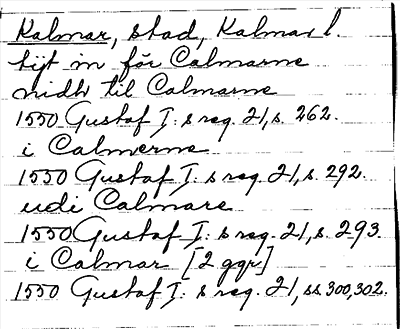 Kalmar, stad, Kalmar l.
hijt in för Calmarne
nidh til Calmarne
1550 Gustaf I:s reg. 21, s. 262.
i Calmerne
1550 Gustaf I:s reg. 21, s. 292.
udi Calmare
1550 Gustaf I:s reg. 21, s. 293.
i Calmar [2 ggr]
1550 Gustaf I:s reg. 21, ss. 300, 302.